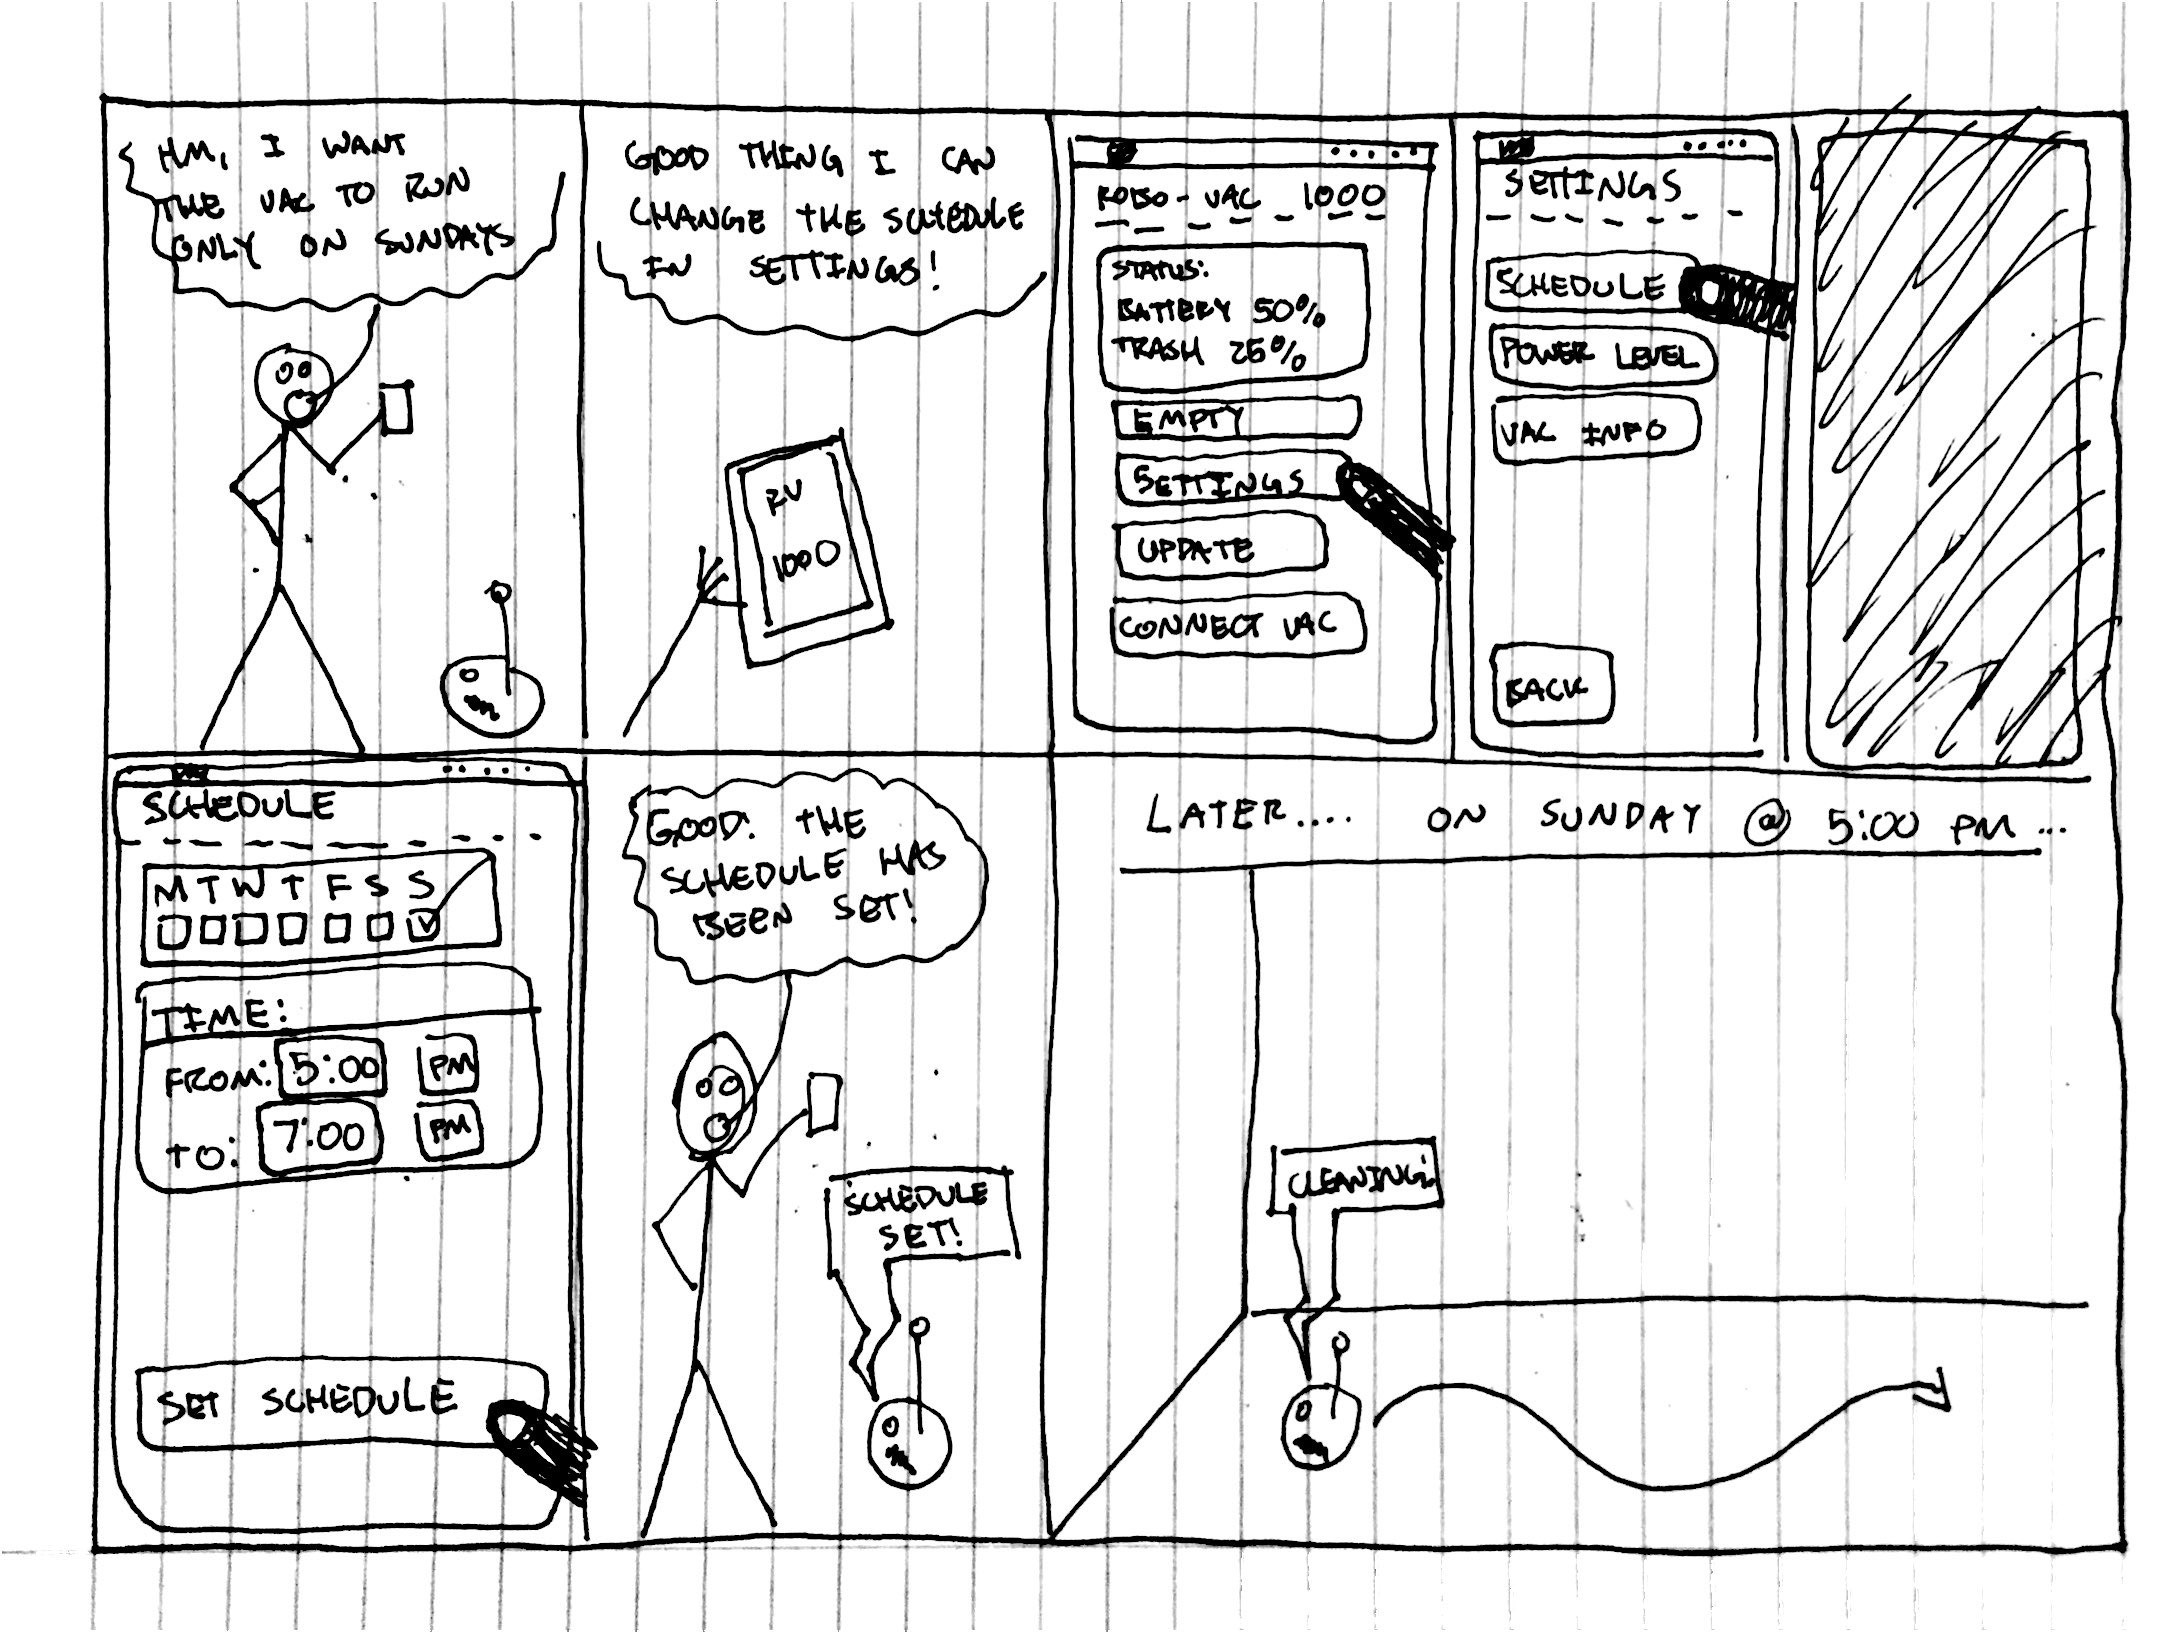 HM, I WANT
THE VAC TO RUN
ONLY ON SUNDAYS
GOOD THING I CAN
CHANGE THE SCHEDULE
IN SETTINGS!
RV
1000
ROBO-VAC 1000
STATUS:
BATTERY 50%
TRASH 25%
EMPTY
SETTINGS
UPDATE
CONNECT VAC
SETTINGS
SCHEDULE
POWER LEVEL
VAC INFO
BACK
SCHEDULE
M T W T F S S
TIME:
FROM: 5:00 PM
TO: 7:00 PM
SET SCHEDULE
GOOD! THE
SCHEDULE HAS
BEEN SET!
SCHEDULE
SET!
LATER.... ON SUNDAY @ 5:00 PM ...
CLEANING!